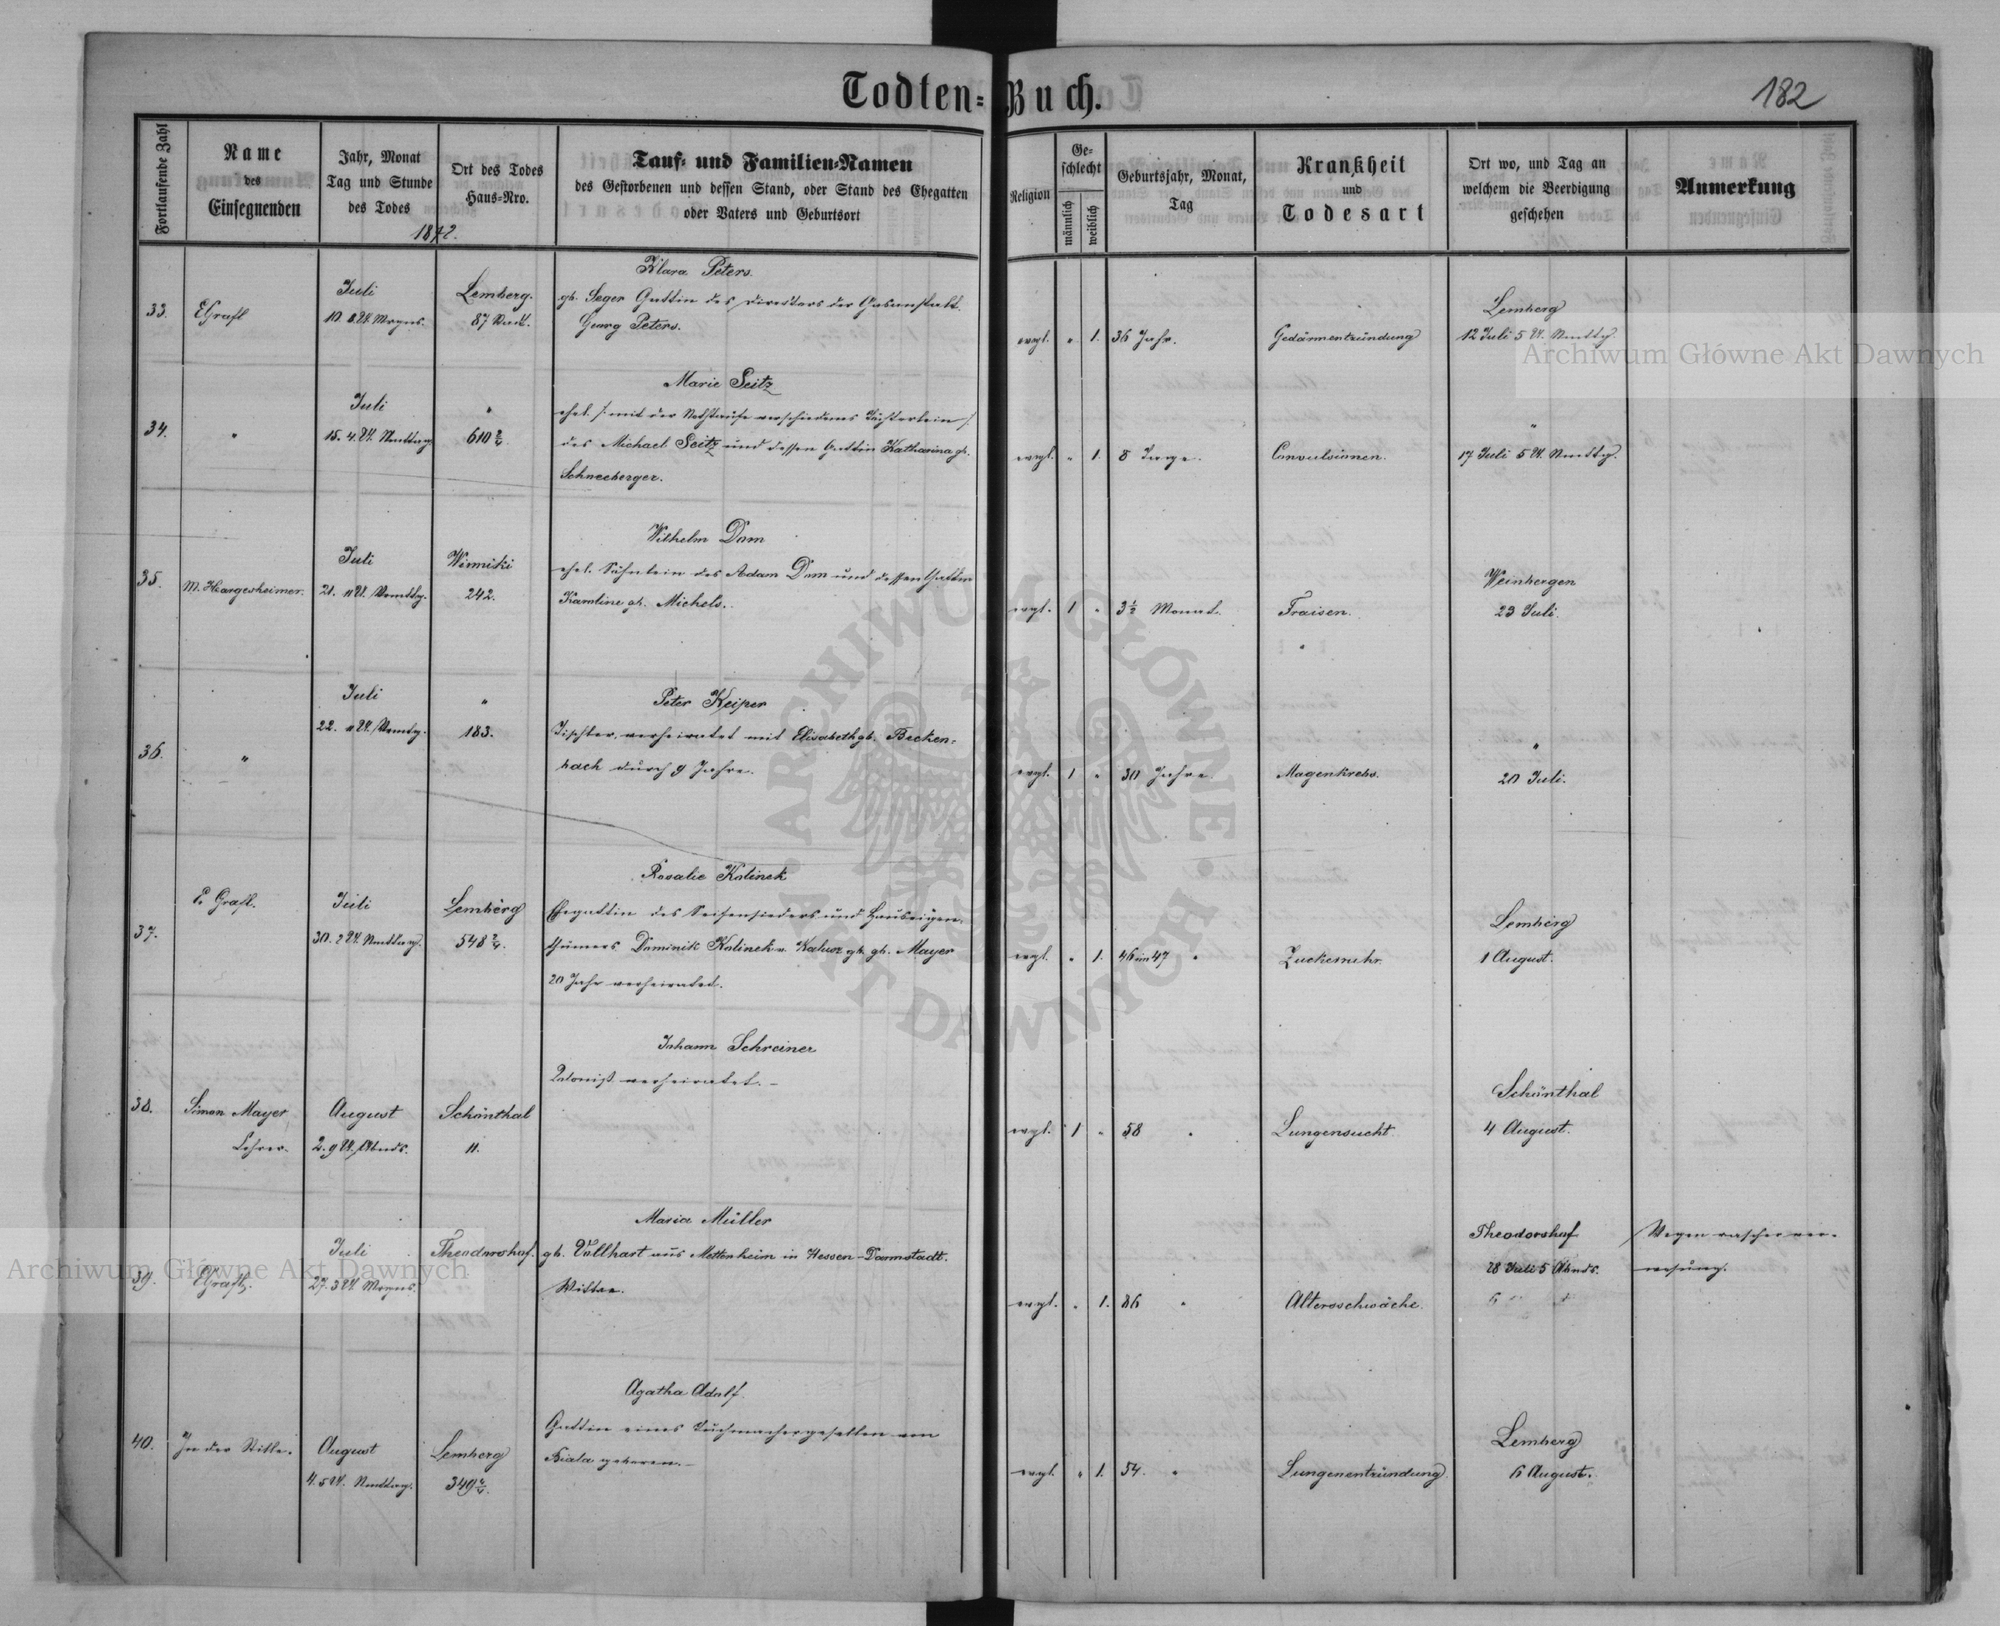 Todten-Buch.
182
Fortlaufende Zahl
Name
des
Einsegnenden
Jahr, Monat
Tag und Stunde
des Todes
1872.
Ort des Todes
Haus-Nro.
Tauf- und Familien-Namen
des Gestorbenen und dessen Stand, oder Stand des Ehegatten
oder Vaters und Geburtsort
Religion
Ge-
schlecht
männlich
weiblich
Geburtsjahr, Monat,
Tag
Krankheit
und
Todesart
Ort wo, und Tag an
welchem die Beerdigung
geschehen
Anmerkung
33.
EGrafl
Juli
Lemberg.
Klara Peters.
gb. Seger Gattin des Direktors der Gasanstalt
Georg Peters.
evgl. " 1. 36 Jahr.
Gedärmentzündung
Lemberg
12 Juli 5 U. Nmttg.
34.
"
Juli
15. 4 U. Nmttag
"
610 2/4
Marie Seitz
ehel. /: mit der Nothtaufe verschiedenes Töchterlein :/
des Michael Seitz und dessen Gattin Katharina gb.
Schneeberger.
evgl. " 1. 8 Tage.
Convulsionen.
"
17 Juli 5 U. Nmttg.
35.
M. Hargesheimer.
Juli
21. 11 U. Vrmttg.
Winniki
242.
Wilhelm Dam
ehel. Söhnlein des Adam Dam und dessen Gattin
Karoline gb. Michels.
evgl. 1 " 3 1/2 Monat.
Fraisen.
Weinbergen
23 Juli.
36.
"
Juli
22. 11 U. Vrmttg.
"
183.
Peter Keiper
Tischler, verheiratet mit Elisabeth gb. Becken-
bach durch 9 Jahre.
evgl. 1 " 30 Jahre.
Magenkrebs.
"
20 Juli.
37.
E. Grafl.
Juli
30. 2 U. Nmttag.
Lemberg
548 2/4.
Rosalie Kalinek
Ehegattin des Seifensieders und Hauseigen-
thümers Dominik Kalinek gb. Mayer
20 Jahr verheiratet.
evgl. " 1. 46 im 47 "
Zuckerruhr.
Lemberg
1 August.
38.
Simon Mayer
Lehrer.
August
2. 9 U. Abnds.
Schönthal
11.
Johann Schreiner
Kolonist verheiratet. -
evgl. 1 " 58 "
Lungensucht.
Schönthal
4 August.
39.
EGrafl.
Juli
27. 3 U. Morgens.
Theodorshof.
Maria Müller
gb. Vollhart aus Mettenheim in Hessen-Darmstadt.
Witwe.
evgl. " 1. 86 "
Altersschwäche.
Theodorshof
28 Juli 5 Abnds.
Wegen rascher ver-
wesung.
40.
In der Stille.
August
4. 5 U. Nmttag.
Lemberg
349 2/4.
Agatha Adolf.
Gattin eines Tuchmachergesellen von
Biala geboren. -
evgl. " 1. 54. "
Lungenentzündung.
Lemberg
6 August.
Archiwum Główne Akt Dawnych
Archiwum Główne Akt Dawnych
ARCHIWUM GŁÓWNE AKT DAWNYCH